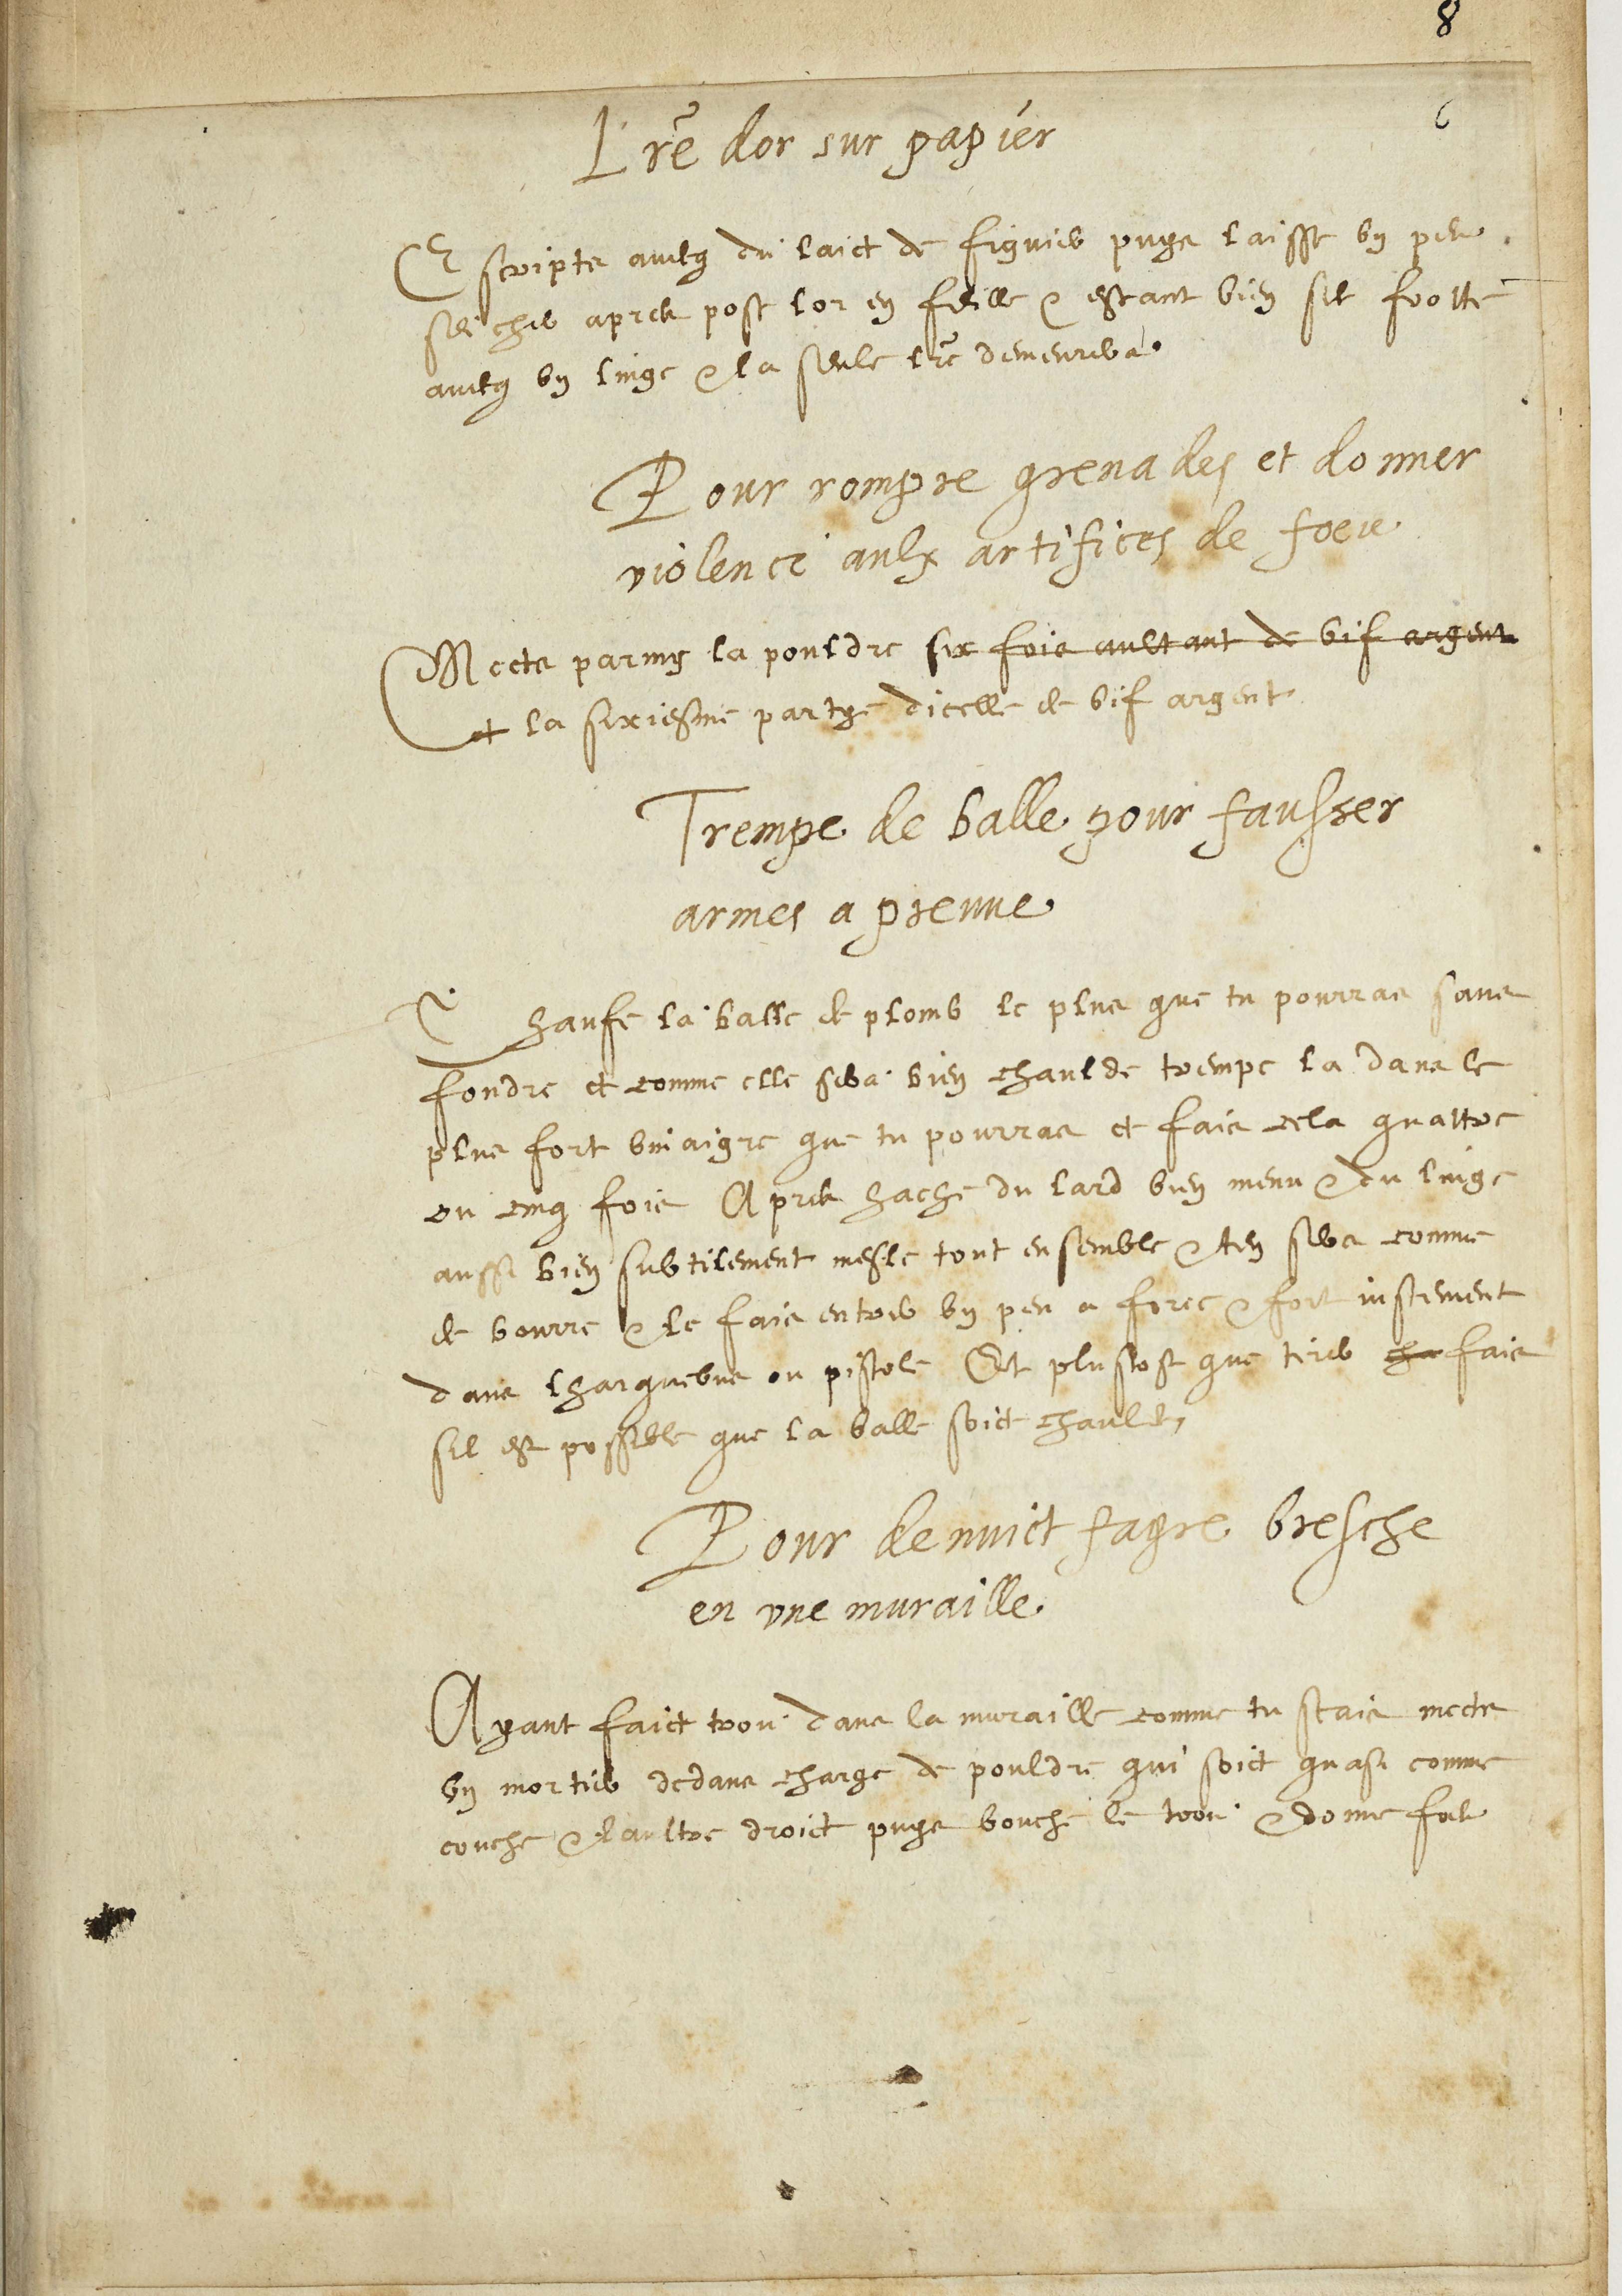 8
6
Lr̃e dor sur papier
Escripts avecq du laict de figuier puys laisse un peu
seicher apres pose lor en feille & estant bien sec frotte
avecq un linge & la seule lr̃e demeurera
Pour rompre grenades et donner
violence aulx artifices de foeu
Mects parmy la pouldre six fois aultant de vif argent
et la sixiesme partye dicelle de vif argent
Trempe de balle pour faulser
armes a preuve
Chaufe la balle de plomb le plus que tu pourras sans
fondre et comme elle sera bien chaulde trempe la dans le
plus fort vinaigre que tu pourras et fais cela quattre
ou cinq fois Apres hache du lard bien menu & du linge
aussi bien subtilement mesle tout ensemble & ten sers comme
de bourre & le fais entrer un peu a force & fort justement
dans lharquebus ou pistole Et plustost que tirer ch fais
sil est possible que la balle soict chaulde,
Pour de nuict fayre bresche
en une muraille
Ayant faict trou dans la muraille comme tu scais mects
un mortier dedans charge de pouldre qui soict quasi comme
couche & laultre droict puys bouche le trou & donne foeu